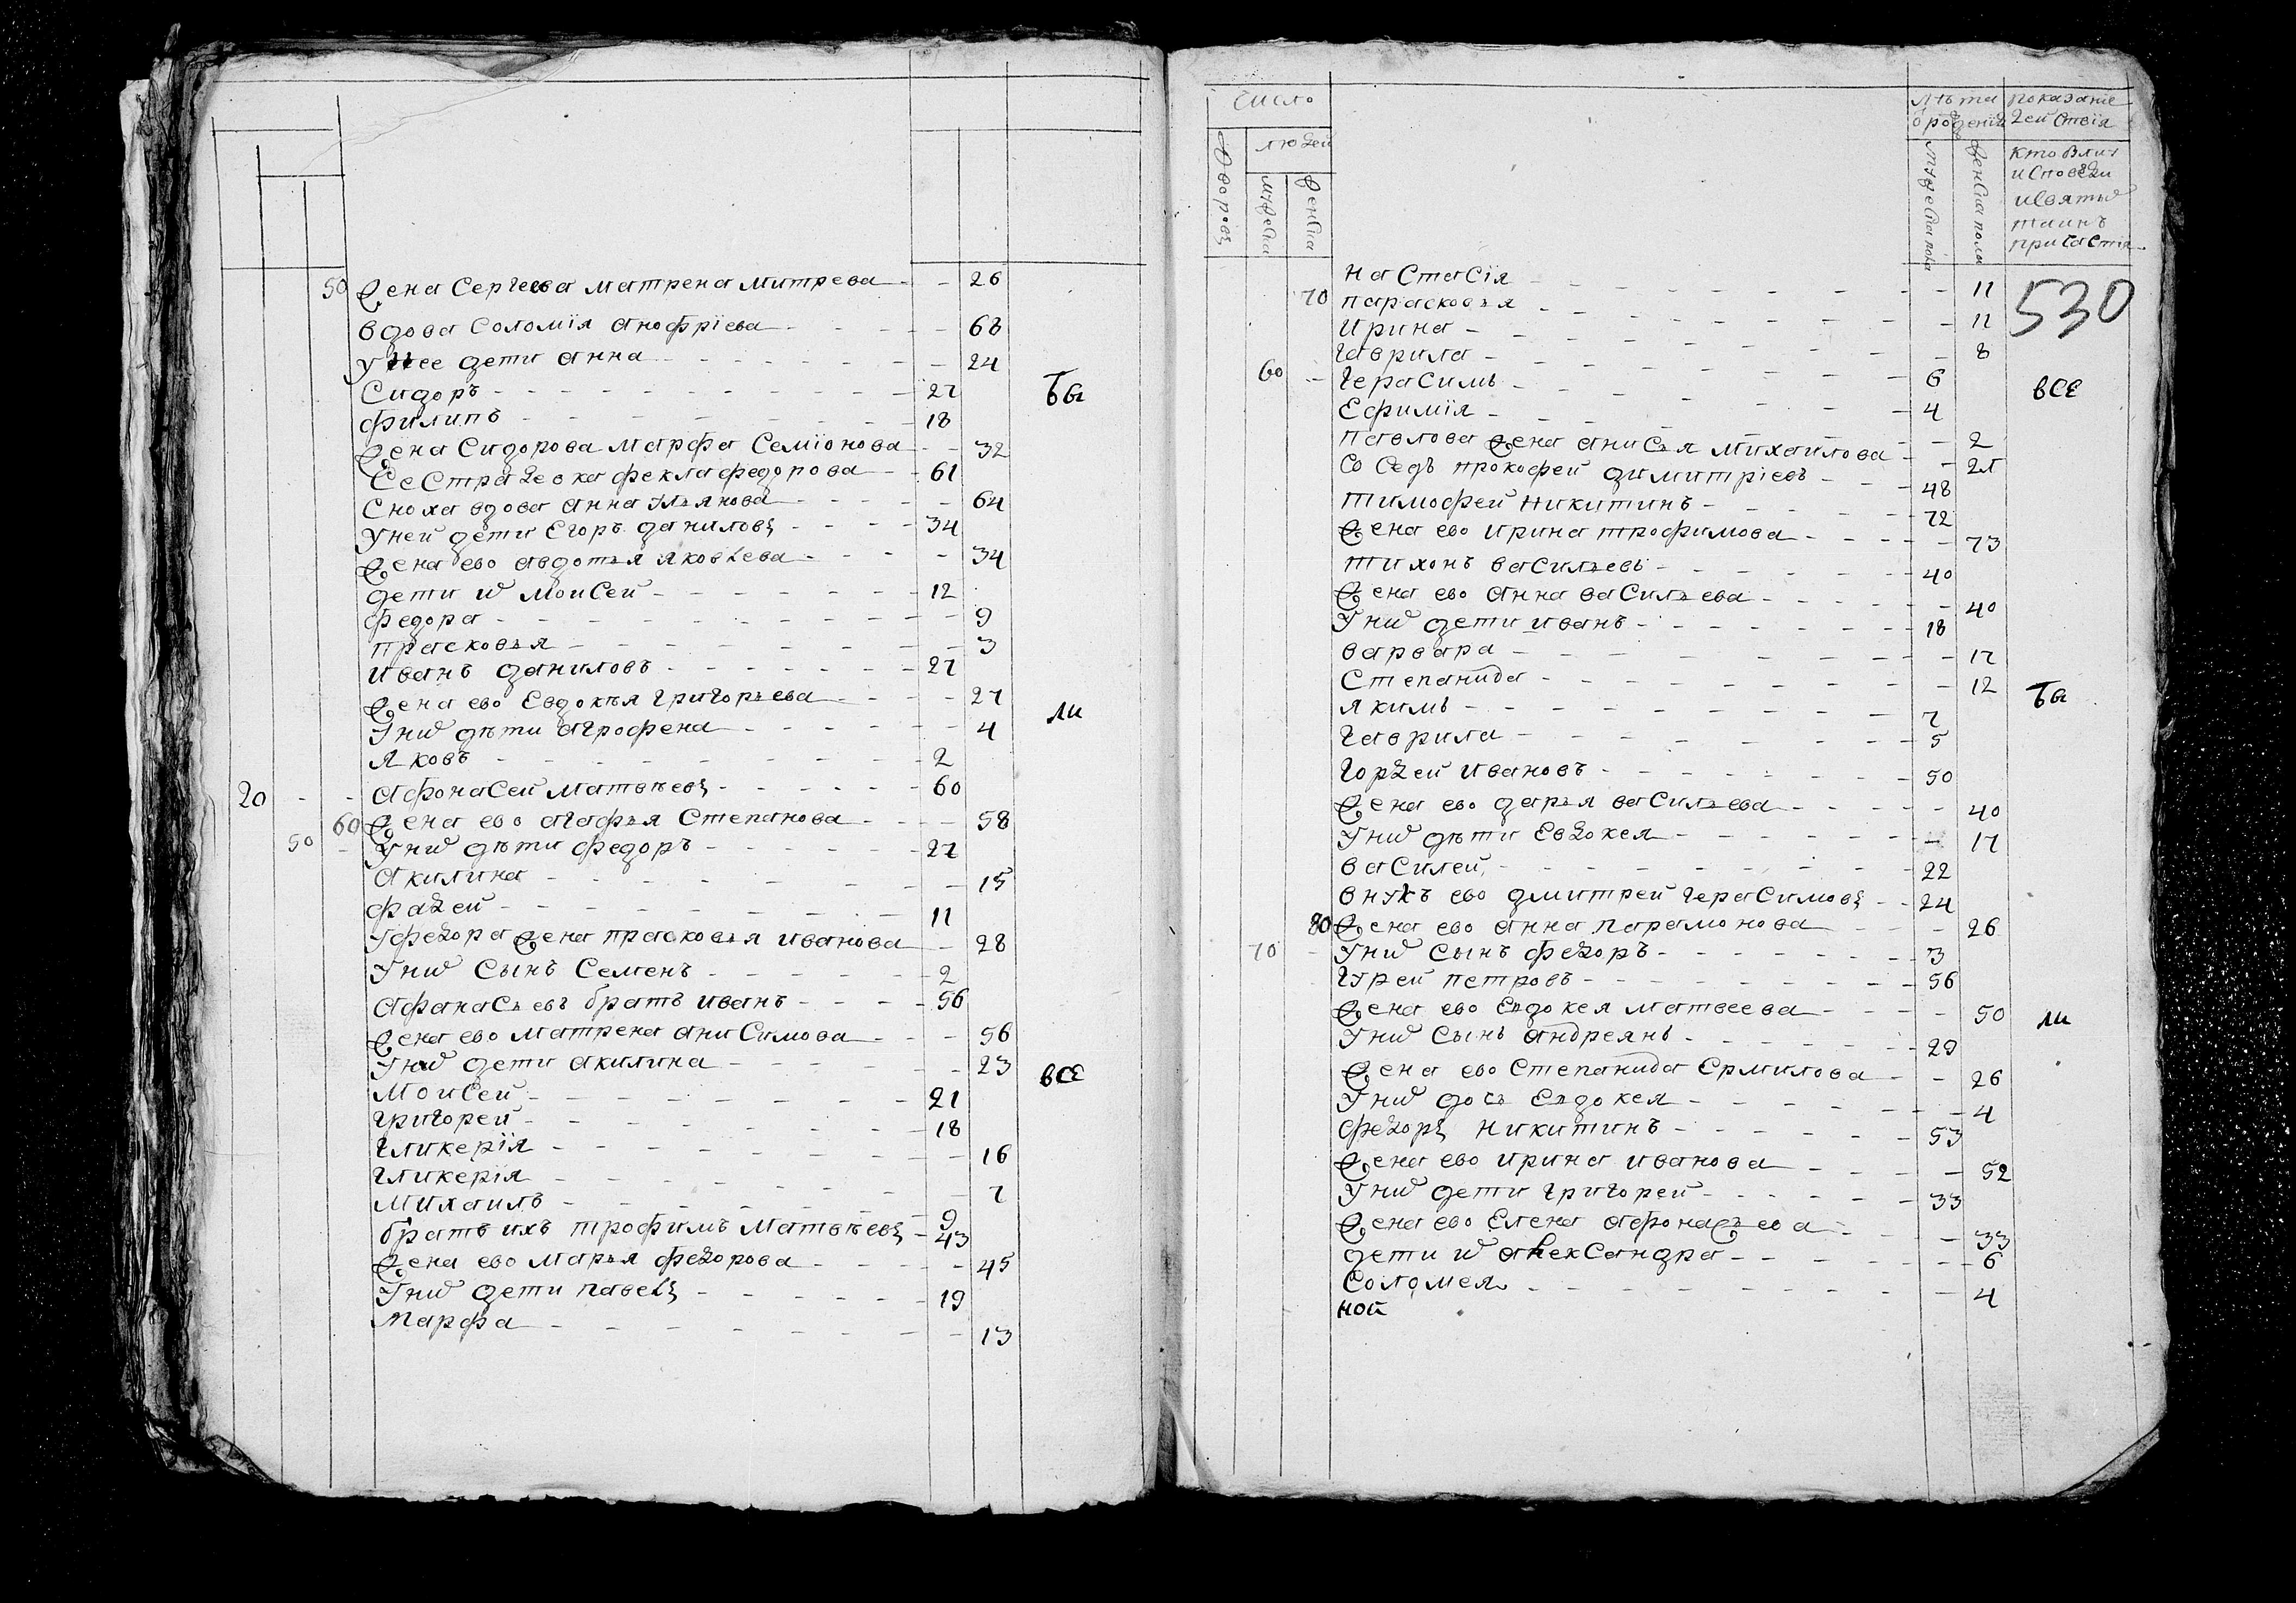 50 жена Сергеева матрена митрева - - 26
вдова Соломїя анофрїева - 68
У нее дети анна - 24
Сидоръ - 27
филипъ - 18
жена Сидорова марфа Семїонова - 32
Ее Страдевка фекла федорова - 61
Сноха вдова анна Ульянова - 64
Уней дети Егоръ даниловъ - 34
жена ево авдотья яковлева - 34
дети и моисей - 12
федора - 9
прасковья - 3
иванъ даниловъ - 27
жена ево Евдокъя григорьева - 27
Унихъ дѣти агрофена - 4
яковъ - 2
20 - - афонасей матвѣевъ - 60
60 жена ево агафья Степанова - 58
50 - Унихъ дѣти федоръ - 27
акилина - 15
фадей - 11
Уфедора жена прасковья иванова - 28
Унихъ Сынъ Семенъ - 2
афанасьевъ братъ иванъ - 56
жена ево матрена анисимова - 56
Унихъ дети акилина - 23
моисей - 21
григорей - 18
гликерїя - 16
гликерїя - 7
михаилъ - 9
братъ ихъ трофимъ матвѣевъ - 43
жена ево марья федорова - 45
Унихъ дети павелъ - 19
марфа - 13
бы
ли
все
Число
дворовъ
людей
мужеска
женска
лѣта
ѿ рожденїя
мужеска пола
женска пола
показанїе
дейСтвїя
кто вли
исповеди
исвятыхъ
таинъ
причастїя
530
настасїя - 11
70 парасковья - 11
ирина - 8
гаврила - 6
60 - герасимъ - 4
Ефимїя - 2
павлова жена анисья михаилова - 21
Соседъ прокофей димитрїевъ - 48
тимофей никитинъ - 72
жена ево ирина трофимова - 73
тихонъ васильевъ - 40
жена ево анна васильева - 40
Унихъ дети иванъ - 18
варвара - 17
Степанида - 12
якимъ - 7
гаврила - 5
гордей ивановъ - 50
жена ево дарья васильева - 40
Унихъ дѣти Евдокея - 17
василей - 22
внукъ ево дмитрей герасимовъ - 24
80 жена ево анна парамонова - 26
70 - Унихъ Сынъ федоръ - 3
гурей петровъ - 56
жена ево Евдокея матвеева - 50
Унихъ Сынъ андреянъ - 29
жена ево Степанида Ермилова - 26
Унихъ дочь Евдокея - 4
федоръ никитинъ - 53
жена ево ирина иванова - 52
Унихъ дети григорей - 33
жена ево Елена афонасьева - 33
дети и александра - 6
Соломея - 4
ной
все
бы
ли